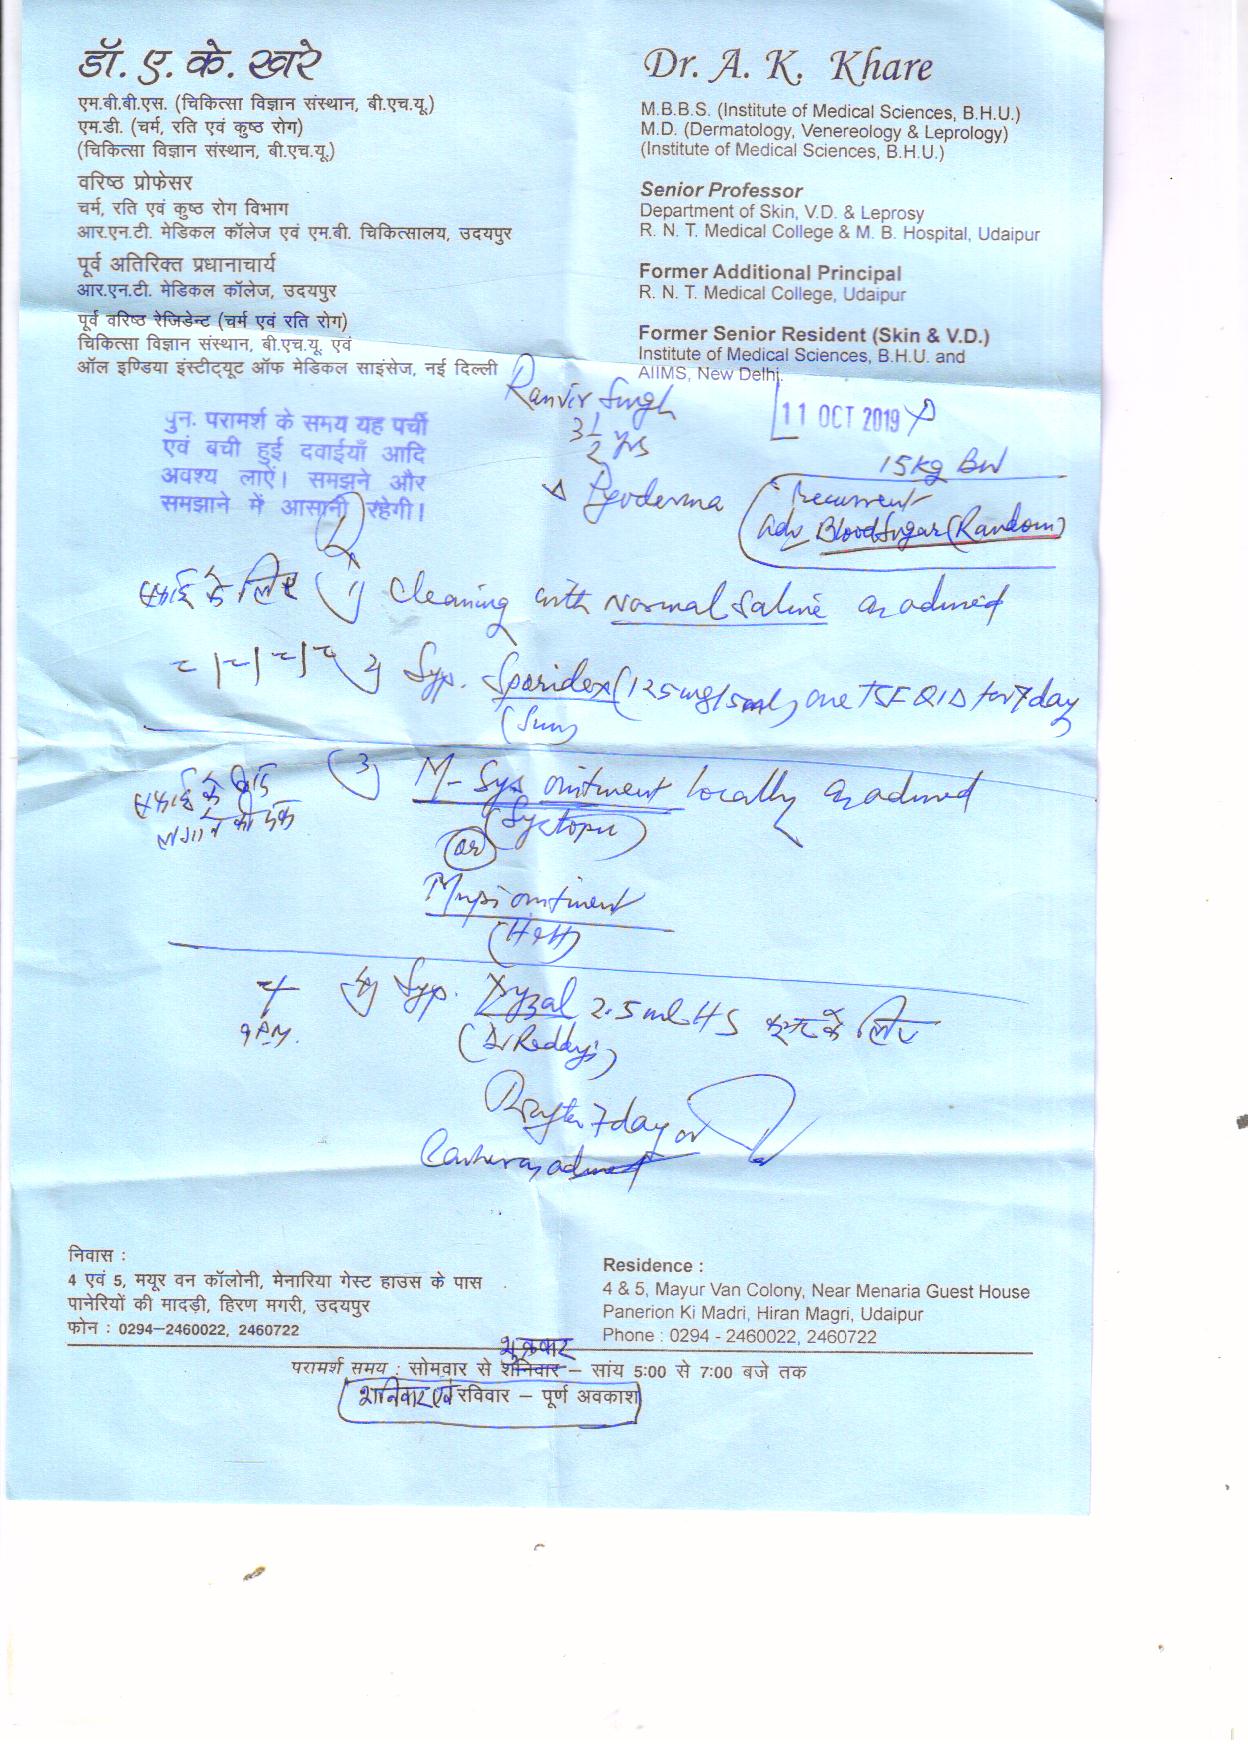 डॉ. ए. के. खरे
एम.बी.बी.एस. (चिकित्सा विज्ञान संस्थान, बी.एच.यू.)
एम.डी. (चर्म, रति एवं कुष्ठ रोग)
(चिकित्सा विज्ञान संस्थान, बी.एच.यू.)
वरिष्ठ प्रोफेसर
चर्म, रति एवं कुष्ठ रोग विभाग
आर.एन.टी. मेडिकल कॉलेज एवं एम.बी. चिकित्सालय, उदयपुर
पूर्व अतिरिक्त प्रधानाचार्य
आर.एन.टी. मेडिकल कॉलेज, उदयपुर
पूर्व वरिष्ठ रेजिडेन्ट (चर्म एवं रति रोग)
चिकित्सा विज्ञान संस्थान, बी.एच.यू. एवं
ऑल इण्डिया इंस्टीट्यूट ऑफ मेडिकल साइंसेज, नई दिल्ली
Dr. A. K. Khare
M.B.B.S. (Institute of Medical Sciences, B.H.U.)
M.D. (Dermatology, Venereology & Leprology)
(Institute of Medical Sciences, B.H.U.)
Senior Professor
Department of Skin, V.D. & Leprosy
R. N. T. Medical College & M. B. Hospital, Udaipur
Former Additional Principal
R. N. T. Medical College, Udaipur
Former Senior Resident (Skin & V.D.)
Institute of Medical Sciences, B.H.U. and
AIIMS, New Delhi.
पुन. परामर्श के समय यह पर्ची
एवं बची हुई दवाईयाँ आदि
अवश्य लाऐं। समझने और
समझाने में आसानी रहेगी।
Ranvir Singh
3 1/2 yrs
11 OCT 2019
15 kg BW
Δ Pyoderma
(recurrent
Adv Blood Sugar (Random)
सफाई के लिए (1) Cleaning with Normal Saline as advised
2) Syp. Sporidex (125 mg/5ml) one TSF QID for 7 days
(Sun)
(3) M-Sys ointment locally as advised
सफाई के बाद
लगाने की
(Systopic)
(or)
Mupi ointment
(H&H)
9 P.M. 4) Syp. Xyzal 2.5 ml HS के लिए
(Dr Reddy's)
R after 7 days or
Earlier as advised
निवास :
4 एवं 5, मयूर वन कॉलोनी, मेनारिया गेस्ट हाउस के पास
पानेरियों की मादड़ी, हिरण मगरी, उदयपुर
फोन : 0294–2460022, 2460722
Residence :
4 & 5, Mayur Van Colony, Near Menaria Guest House
Panerion Ki Madri, Hiran Magri, Udaipur
Phone : 0294 - 2460022, 2460722
शुक्रवार
परामर्श समय : सोमवार से शनिवार – सांय 5:00 से 7:00 बजे तक
शनिवार एवं रविवार – पूर्ण अवकाश